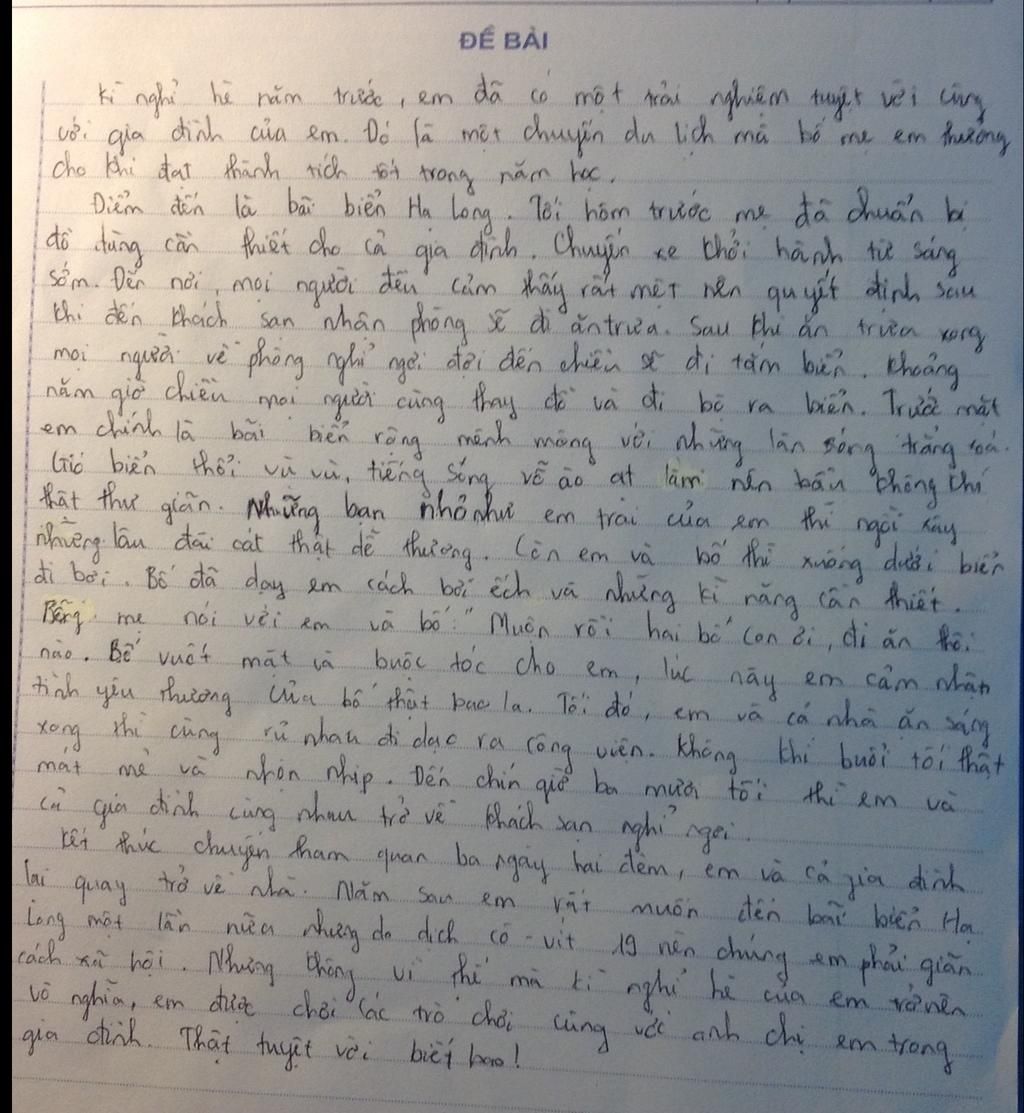 ĐỀ BÀI
Kì nghỉ hè năm trước, em đã có một trải nghiệm tuyệt vời cùng
với gia đình của em. Đó là một chuyến du lịch mà bố mẹ em thưởng
cho khi đạt thành tích tốt trong năm học.
Điểm đến là bãi biển Hạ Long. Tối hôm trước mẹ đã chuẩn bị
đồ dùng cần thiết cho cả gia đình. Chuyến xe khởi hành từ sáng
sớm. Đến nơi, mọi người đều cảm thấy rất mệt nên quyết định sau
khi đến khách sạn nhận phòng sẽ đi ăn trưa. Sau khi ăn trưa xong
mọi người về phòng nghỉ ngơi đợi đến chiều sẽ đi tắm biển. Khoảng
năm giờ chiều mọi người cùng thay đồ và đi bộ ra biển. Trước mặt
em chính là bãi biển rộng mênh mông với những làn sóng trắng xoá.
Gió biển thổi vù vù, tiếng sóng vỗ ào ạt làm nên bầu không khí
thật thư giãn. Những bạn nhỏ như em trai của em thì ngồi xây
những lâu đài cát thật dễ thương. Còn em và bố thì xuống dưới biển
đi bơi. Bố đã dạy em cách bơi ếch và những kĩ năng cần thiết.
Bỗng mẹ nói với em và bố:" Muộn rồi hai bố con ơi, đi ăn thôi
nào. Bố vuốt mặt và buộc tóc cho em, lúc này em cảm nhận
tình yêu thương của bố thật bao la. Tối đó, em và cả nhà ăn sáng
xong thì cùng rủ nhau đi dạo ra công viên. Không khí buổi tối thật
mát mẻ và nhộn nhịp. Đến chín giờ ba mươi tối thì em và
cả gia đình cùng nhau trở về khách sạn nghỉ ngơi.
Kết thúc chuyến tham quan ba ngày hai đêm, em và cả gia đình
lại quay trở về nhà. Năm sau em rất muốn đến bãi biển Hạ
Long một lần nữa nhưng do dịch cô-vít 19 nên chúng em phải giãn
cách xã hội. Nhưng không vì thế mà kì nghỉ hè của em trở nên
vô nghĩa, em được chơi các trò chơi cùng với anh chị em trong
gia đình. Thật tuyệt vời biết bao!